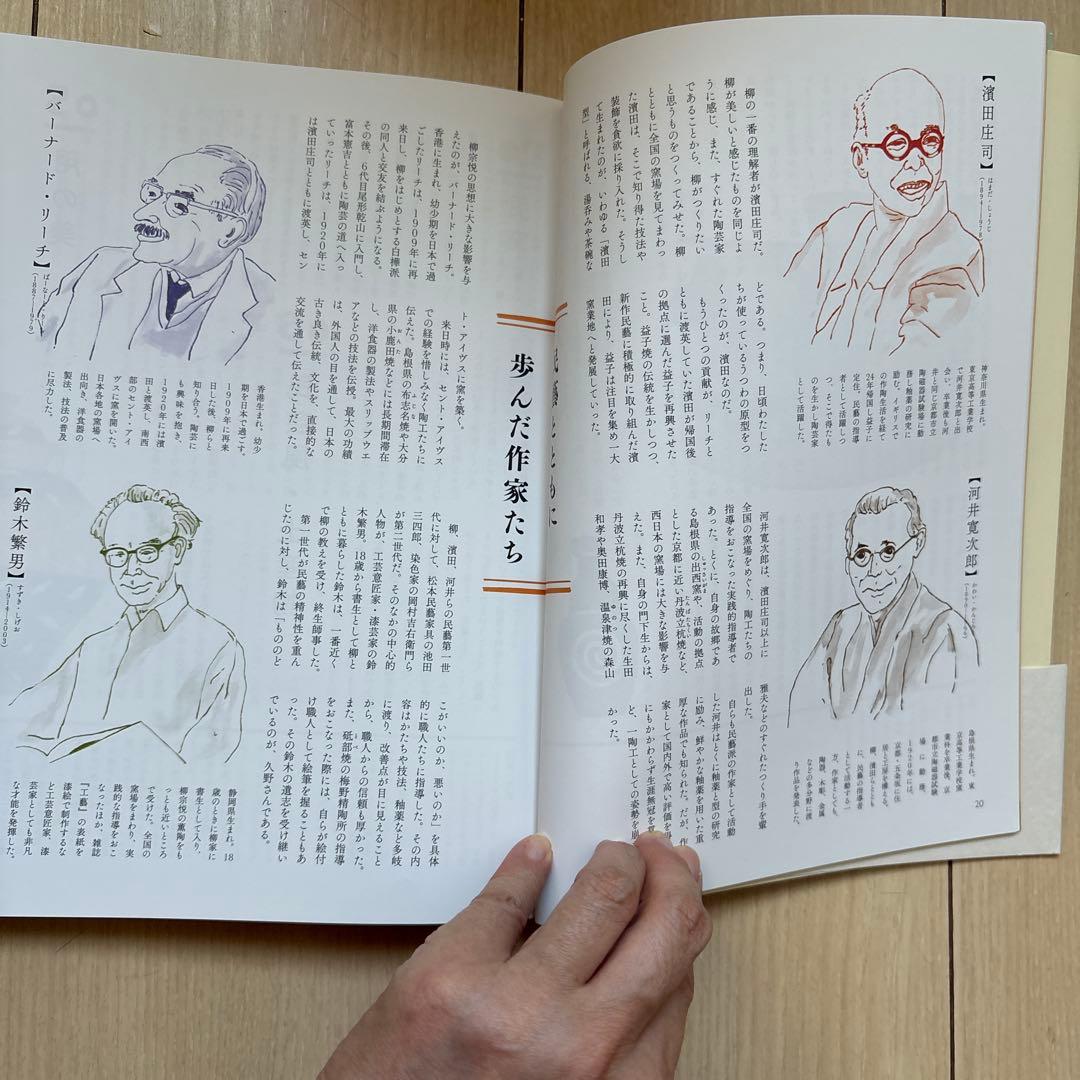 【濱田庄司】
はまだ・しょうじ
(1894-1978)
柳の一番の理解者が濱田庄司だ。
柳が美しいと感じたものを同じよ
うに感じ、また、すぐれた陶芸家
であることから、柳がつくりたい
と思うものをつくってみせた。柳
とともに全国の窯場を見てまわっ
た濱田は、そこで知り得た技法や
装飾を貪欲に採り入れた。そうし
て生まれたのが、いわゆる「濱田
型」と呼ばれる、湯呑みや茶碗な
どである。つまり、日頃わたした
ちが使っているうつわの原型をつ
くったのが、濱田なのだ。
もうひとつの貢献が、リーチと
ともに渡英していた濱田が帰国後
の拠点に選んだ益子を再興させた
こと。益子焼の伝統を生かしつつ、
新作民藝に積極的に取り組んだ濱
田により、益子は注目を集め一大
窯業地へと発展していった。
神奈川県生まれ。
東京高等工業学校
で河井寛次郎と出
会い、卒業後も河
井と同じ京都市立
陶磁器試験場に勤
務し釉薬の研究に
励む。イギリスで
の作陶生活を経て
24年帰国し益子に
定住。民藝の指導
者として活躍しつ
つ、そこで得たも
のを生かし陶芸家
として活躍した。
【河井寛次郎】
かわい・かんじろう
河井寛次郎は、濱田庄司以上に
全国の窯場をめぐり、陶工たちの
指導をおこなった実践的指導者で
あった。とくに、自身の故郷であ
る島根県の出西窯や、活動の拠点
しゅっさいがま
とした京都に近い丹波立杭焼など、
たんばたちくい
西日本の窯場には大きな影響を与
えた。また、自身の門下生からは、
丹波立杭焼の再興に尽くした生田
和孝や奥田康博、温泉津焼の森山
ゆのつ
雅夫などのすぐれたつくり手を輩
出した。
自らも民藝派の作家として活動
した河井はとくに釉薬と型の研究
に励み、鮮やかな釉薬を用いた重
厚な作品でも知られた。だが、作
家として国内外で高い評価を
にもかかわらず生涯無冠を
ど、一陶工としての姿勢を
かった。
島根県生まれ。東
京高等工業学校窯
業科を卒業後、京
都市立陶磁器試験
場に勤務。
1920年には、
京都・五条坂に住
居と工房を構える。
柳、濱田らととも
に、民藝の指導者
として活動する一
方、作家としても、
陶器、木彫、金属
などの多分野に渡
り作品を発表した。
20
民藝とともに
歩んだ作家たち
【バーナード・リーチ】
ばーなーど・りーち
(1887-1979)
柳宗悦の思想に大きな影響を与
えたのが、バーナード・リーチ。
香港に生まれ、幼少期を日本で過
ごしたリーチは、1909年に再
来日し、柳をはじめとする白樺派
の同人と交友を結ぶようになる。
その後、6代目尾形乾山に入門し、
富本憲吉とともに陶芸の道へ入っ
ていったリーチは、1920年に
は濱田庄司とともに渡英し、セン
ト・アイヴスに窯を築く。
来日時には、セント・アイヴス
での経験を惜しみなく陶工たちに
伝えた。島根県の布志名焼や大分
ふじな
県の小鹿田焼などには長期間滞在
おんた
し、洋食器の製法やスリップウエ
アなどの技法を伝授。最大の功績
は、外国人の目を通して、日本の
古き良き伝統、文化を、直接的な
交流を通して伝えたことだった。
香港生まれ、幼少
期を日本で過ごす。
1909年に再来
日した後、柳らと
知り合う。陶芸に
も興味を抱き、
1920年には濱
田と渡英し、南西
部のセント・アイ
ヴスに窯を開いた。
日本各地の窯場へ
出向き、洋食器の
製法、技法の普及
に尽力した。
【鈴木繁男】
すずき・しげお
(1914-2003)
柳、濱田、河井らの民藝第一世
代に対して、松本民藝家具の池田
三四郎、染色家の岡村吉右衛門ら
が第二世代だ。そのなかの中心的
人物が、工芸意匠家・漆芸家の鈴
木繁男。18歳から書生として柳と
ともに暮らした鈴木は、一番近く
で柳の教えを受け、終生師事した。
第一世代が民藝の精神性を重ん
じたのに対し、鈴木は「もののと
こがいいのか、悪いのか」を具体
的に職人たちに指導した。その内
容はかたちや技法、釉薬など多岐
に渡り、改善点が目に見えること
から、職人からの信頼も厚かった。
また、砥部焼の梅野精陶所の指導
とべ
をおこなった際には、自らが絵付
け職人として絵筆を握ることもあ
った。その鈴木の遺志を受け継い
でいるのが、久野さんである。
静岡県生まれ。18
歳のときに柳家に
書生として入り、
柳宗悦の薫陶をも
っとも近いところ
で受けた。全国の
窯場をまわり、実
践的な指導をおこ
なったほか、雑誌
『工藝』の表紙を
漆絵で制作するな
ど工芸意匠家、漆
芸家としても非凡
な才能を発揮した。